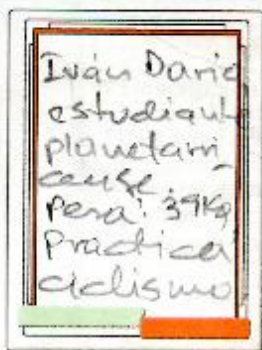 Iván Dario
estudiante
planetari
cense.
Pesa: 39Kg
Practica
ciclismo